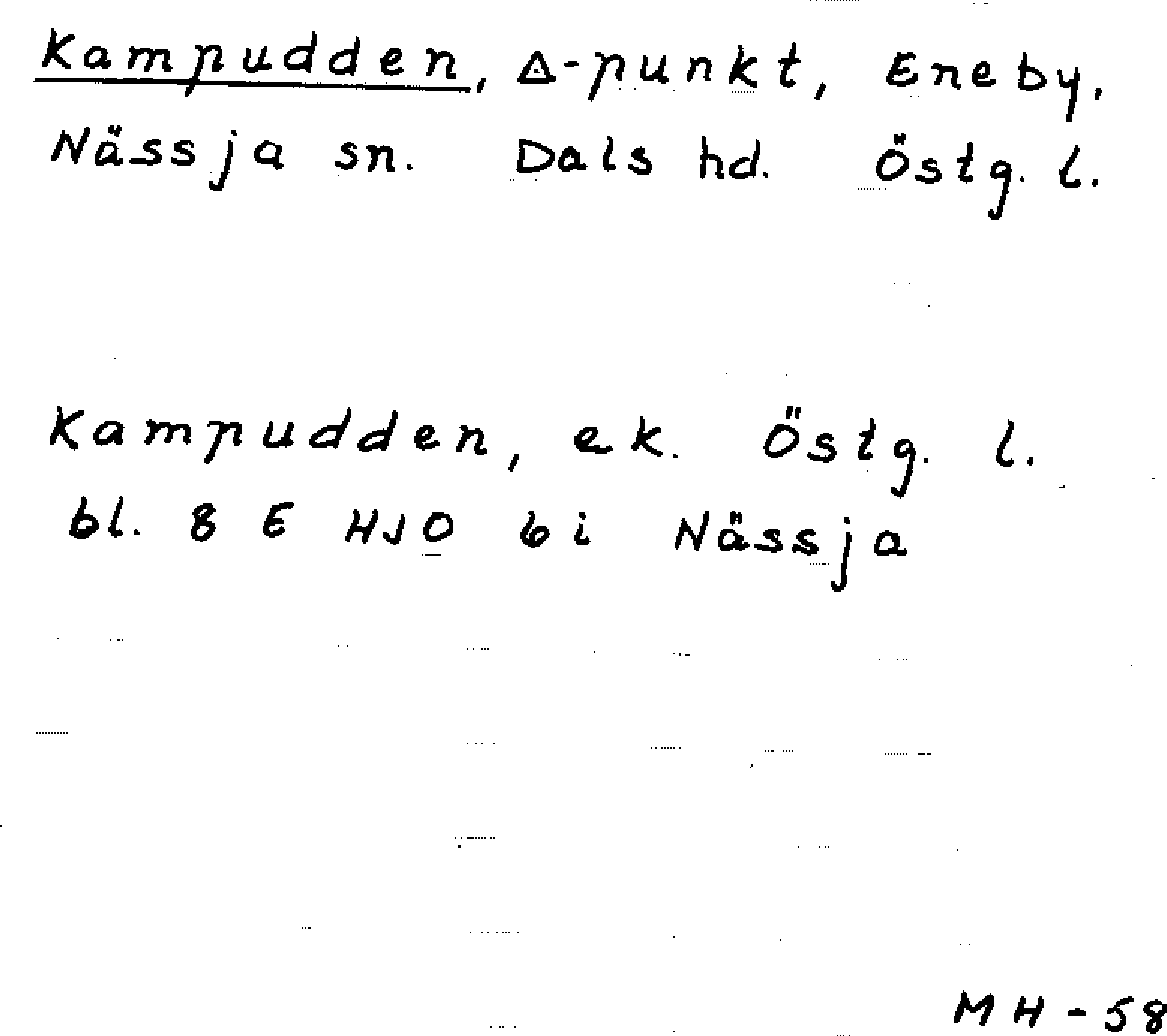 Kampudden, Δ-punkt, Eneby.
Nässja sn. Dals hd. Östg. l.
Kampudden, ek. Östg. l.
bl. 8 E HJO 6i Nässja
MH-58